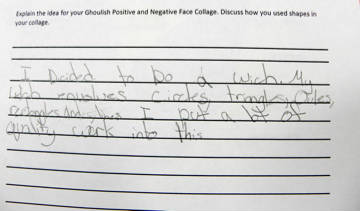 Explain the idea for your Ghoulish Positive and Negative Face Collage. Discuss how you used shapes in
your collage.
I Decided to Do a wich. My
involves circles, triangles,
rectangles And I put a lot of
quality work into this